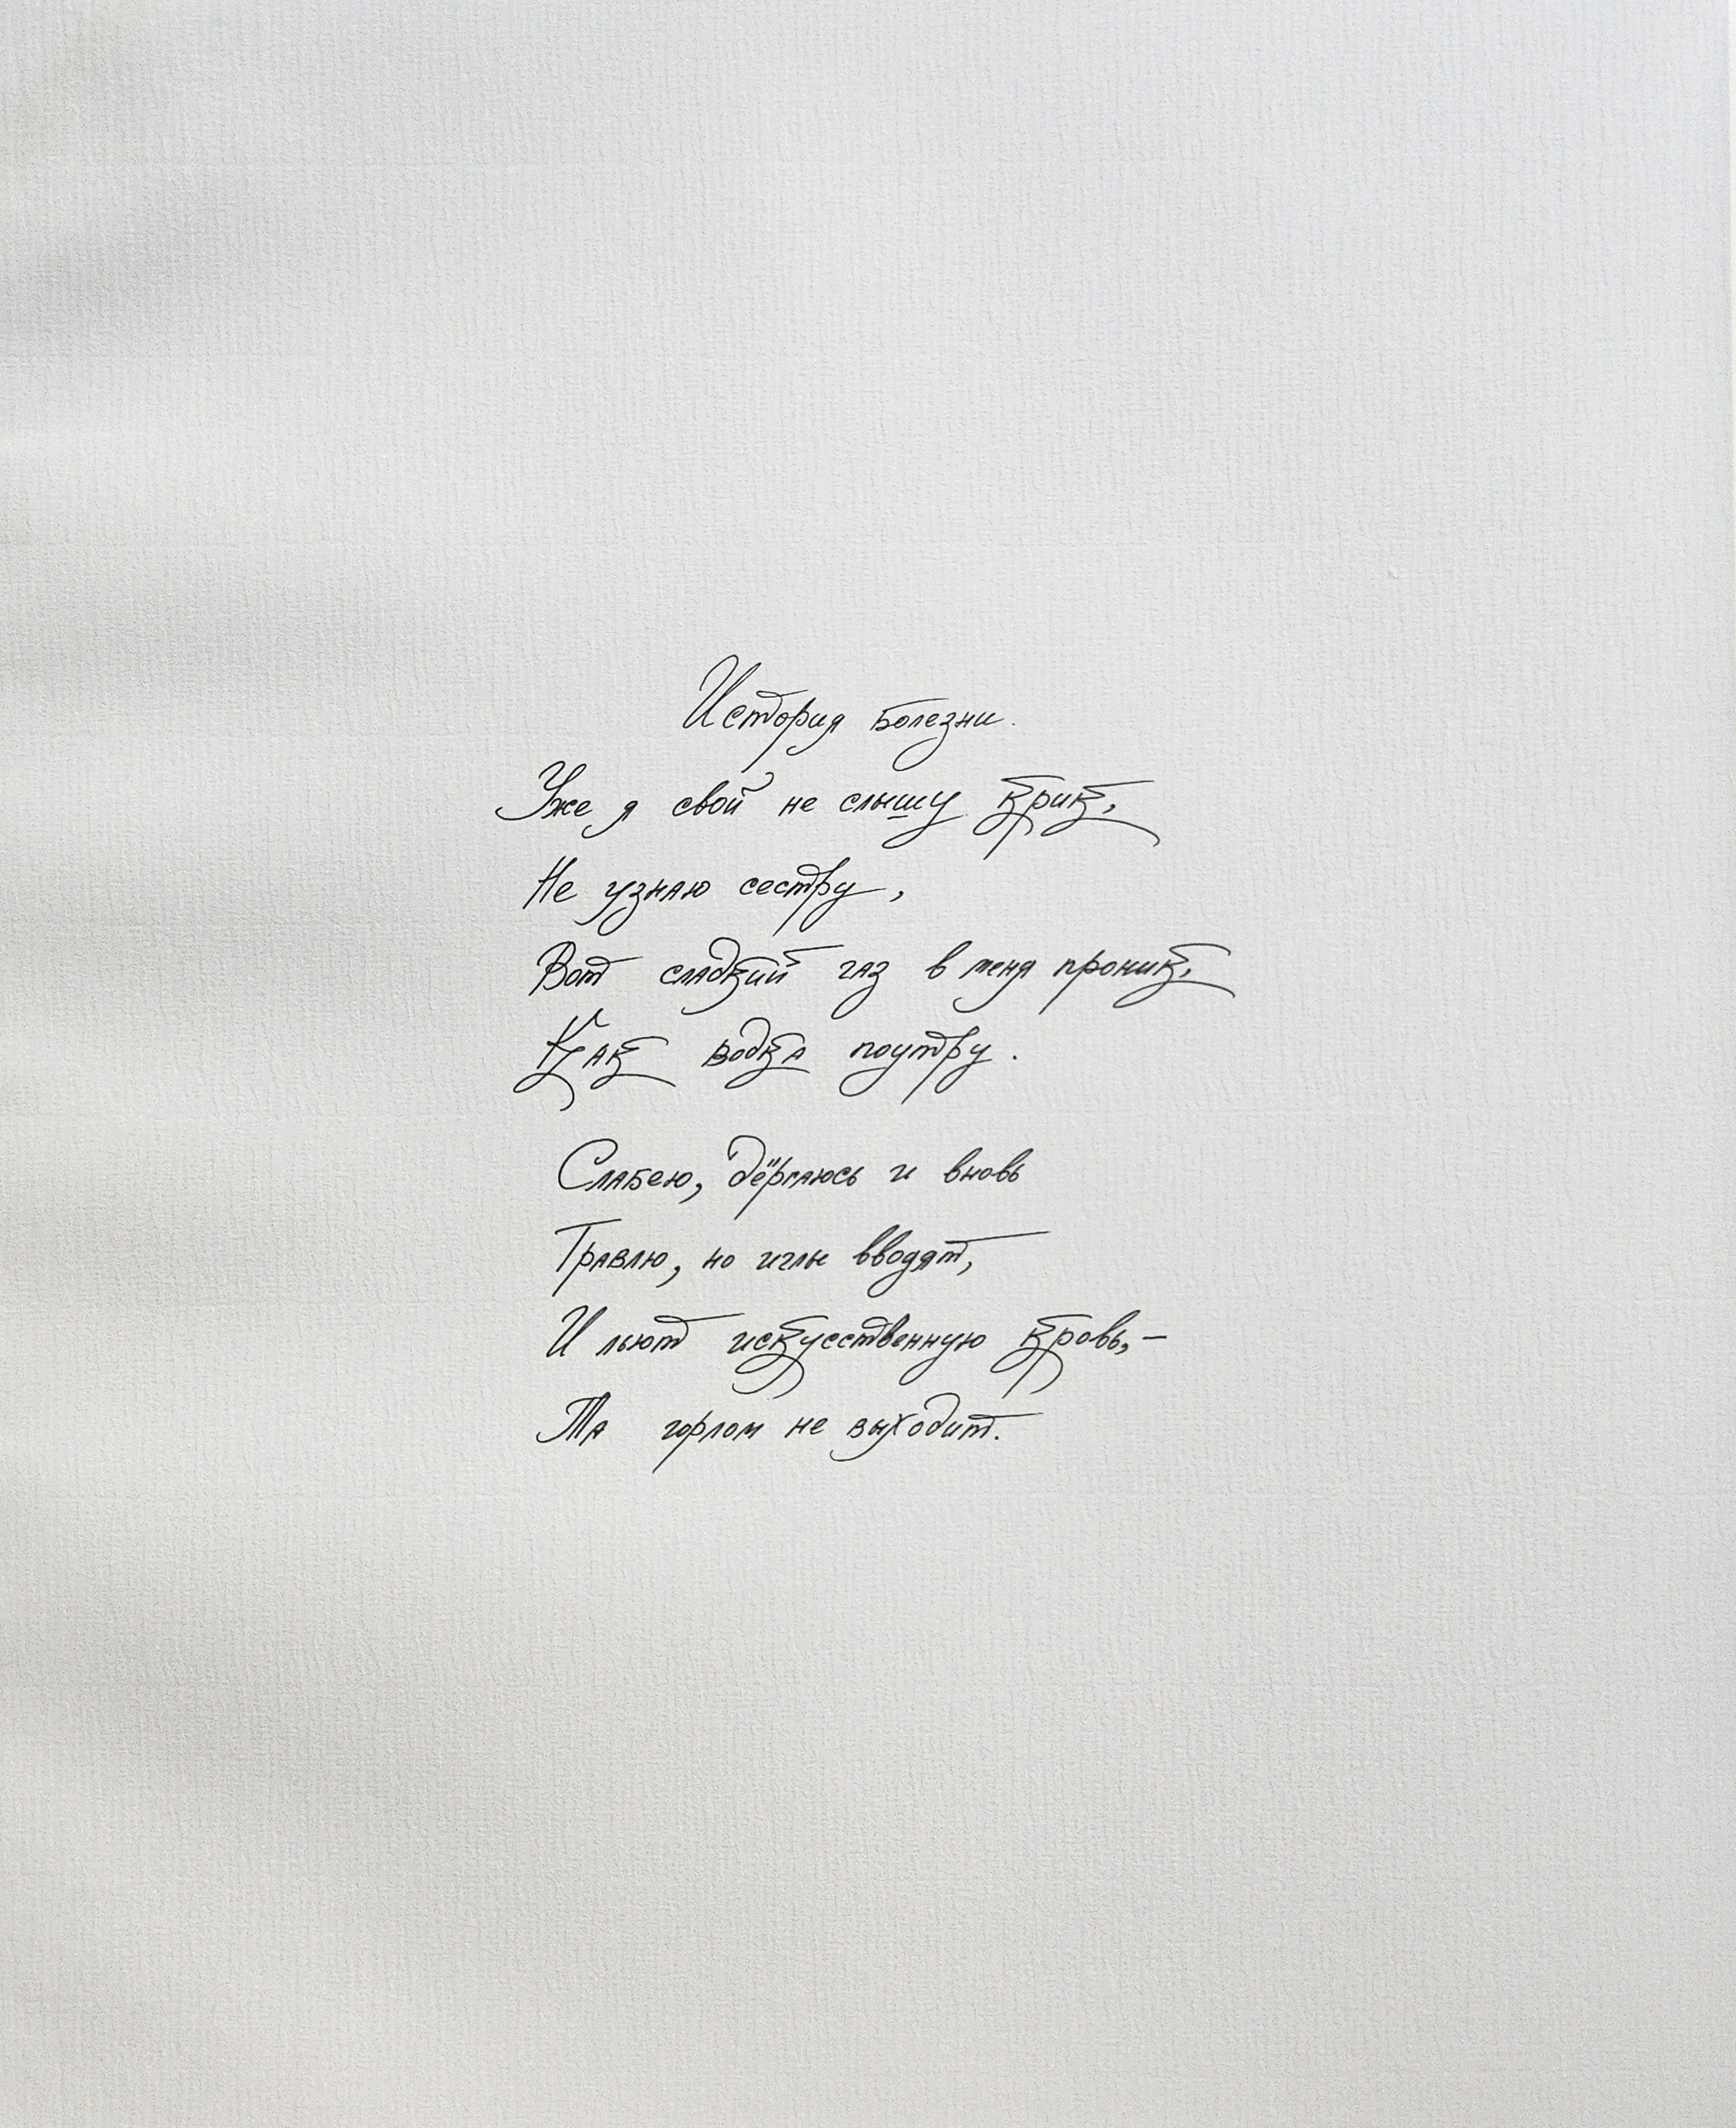 История болезни.
Уже я свой не слышу крик,
Не узнаю сестру,
Вот сладкий газ в меня проник,
Как водка поутру.
Слабею, дёргаюсь и вновь
Травлю, но иглы вводят,
И льют искусственную кровь,–
Та горлом не выходит.